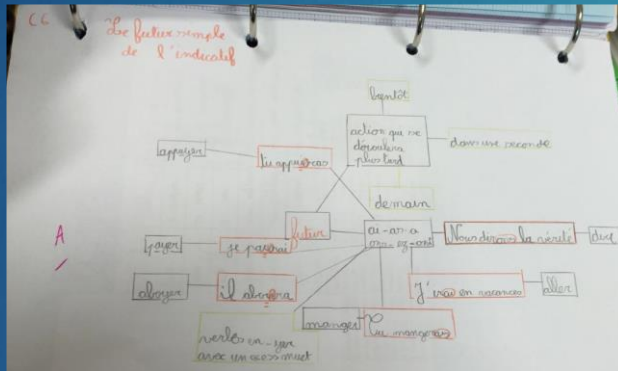 C6
Le futur simple
de l'indicatif
bientôt
action qui se
déroulera
plus tard
dans une seconde
appuyer
tu appuieras
demain
futur
ai-as-a
ons-ez-ont
Nous dirons la vérité
dire
A
payer
je paierai
aboyer
il aboiera
J'irai en vacances
aller
manger
Tu mangeras
verbes en -yer
avec un e muet